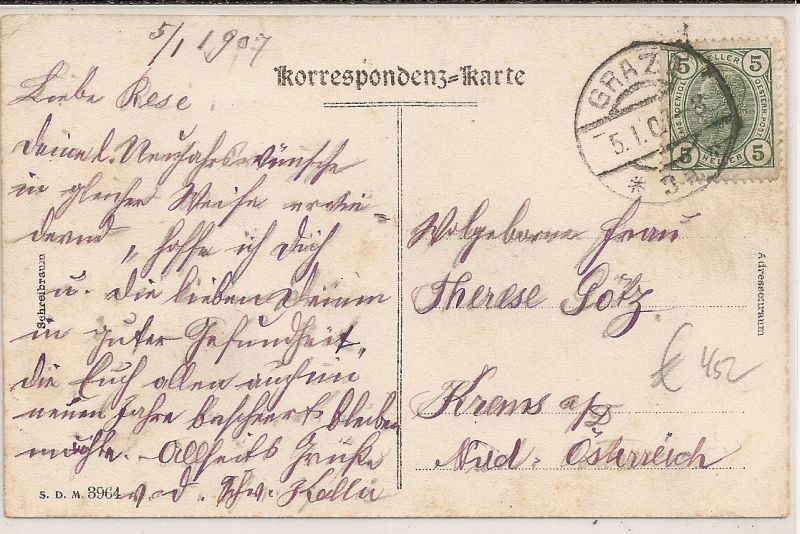 5/1 1907
Korrespondenz=Karte
Liebe Rese
Deine l. Neujahrswünsche
in gleicher Weise erwie=
dernd, hoffe ich Dich
u. die lieben Deinen
in guter Gesundheit,
die Euch allen auch im
neuen Jahre beschert bleiben
möchte. Allseits Grüße
v. d. Schw.
Schreibraum
S. D. M. 3964
GRAZ
5.1.0
5 HELLER 5
5 HELLER 5
Wolgeborne Frau
Therese Götz
Krems a/D
Nied. Österreich
Adressenraum
452